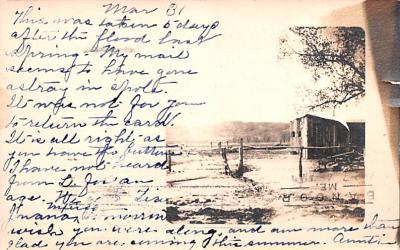 Mar 31
This was taken 5 days
after the flood last
Spring. My mail
seems to have gone
astray in spots.
It was not for you
to return the card.
It is all right as
you have the
I have not heard
from D. for an
age.
wish you were along, and am more than
glad you are coming this summer. Aunt